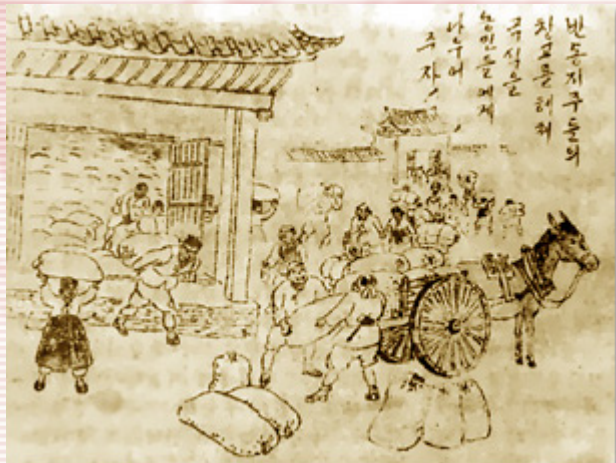 반동지주들의
창고를 헤쳐
곡식을
농민들에게
나누어
주자!